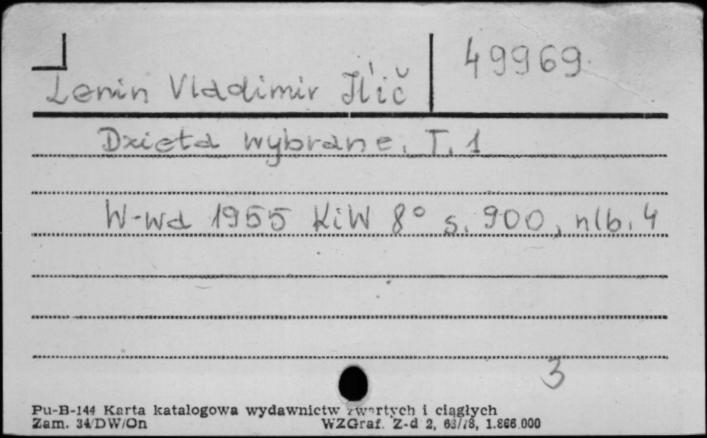 49969
Lenin Vladimir Il'ič
Dzieła wybrane. T. 1
W-wa 1955 KiW 8° s. 900, nlb. 4
3
Pu-B-144 Karta katalogowa wydawnictw zwartych i ciągłych
Zam. 34/DW/On WZGraf. Z-d 2, 63/78, 1.866.000